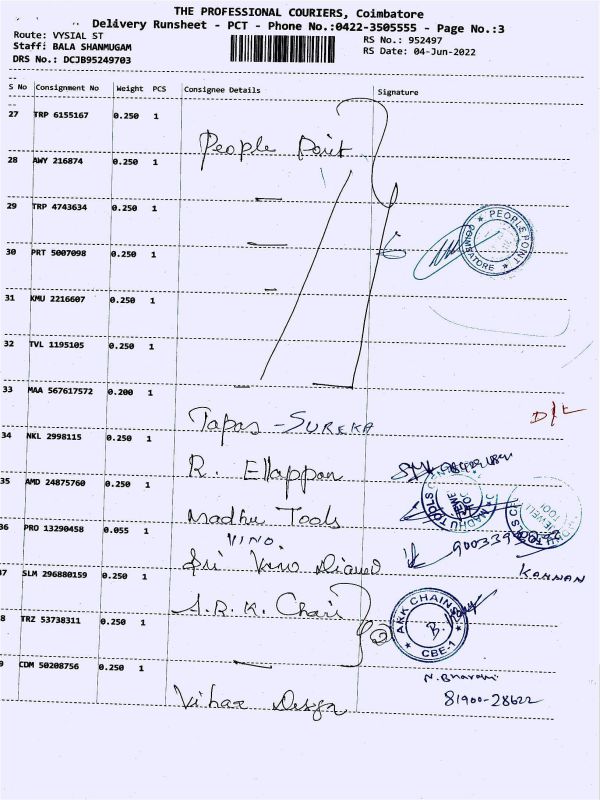 THE PROFESSIONAL COURIERS, Coimbatore
Delivery Runsheet - PCT - Phone No.:0422-3505555 - Page No.:3
Route: VYSIAL ST
RS No.: 952497
Staff: BALA SHANMUGAM
RS Date: 04-Jun-2022
DRS No.: DCJB95249703
S No Consignment No Weight PCS Consignee Details Signature
27 TRP 6155167 0.250 1
People Point
28 AWY 216874 0.250 1
29 TRP 4743634 0.250 1
PEOPLE POINT COIMBATORE
30 PRT 5007098 0.250 1
31 KMU 2216607 0.250 1
32 TVL 1195105 0.250 1
33 MAA 567617572 0.200 1
Tapas - SUREKA D/L
34 NKL 2998115 0.250 1
R. Ellappan
35 AMD 24875760 0.250 1
Madhu Tools
MADHU TOOLS
36 PRO 13290458 0.055 1
VINO
Sri Vino
KANNAN
7 SLM 296880159 0.250 1
A.R.K. Chain
ARK CHAINS CBE-1
8 TRZ 53738311 0.250 1
9 CDM 50208756 0.250 1
N. Bharani
Vihar Design
81900-28622